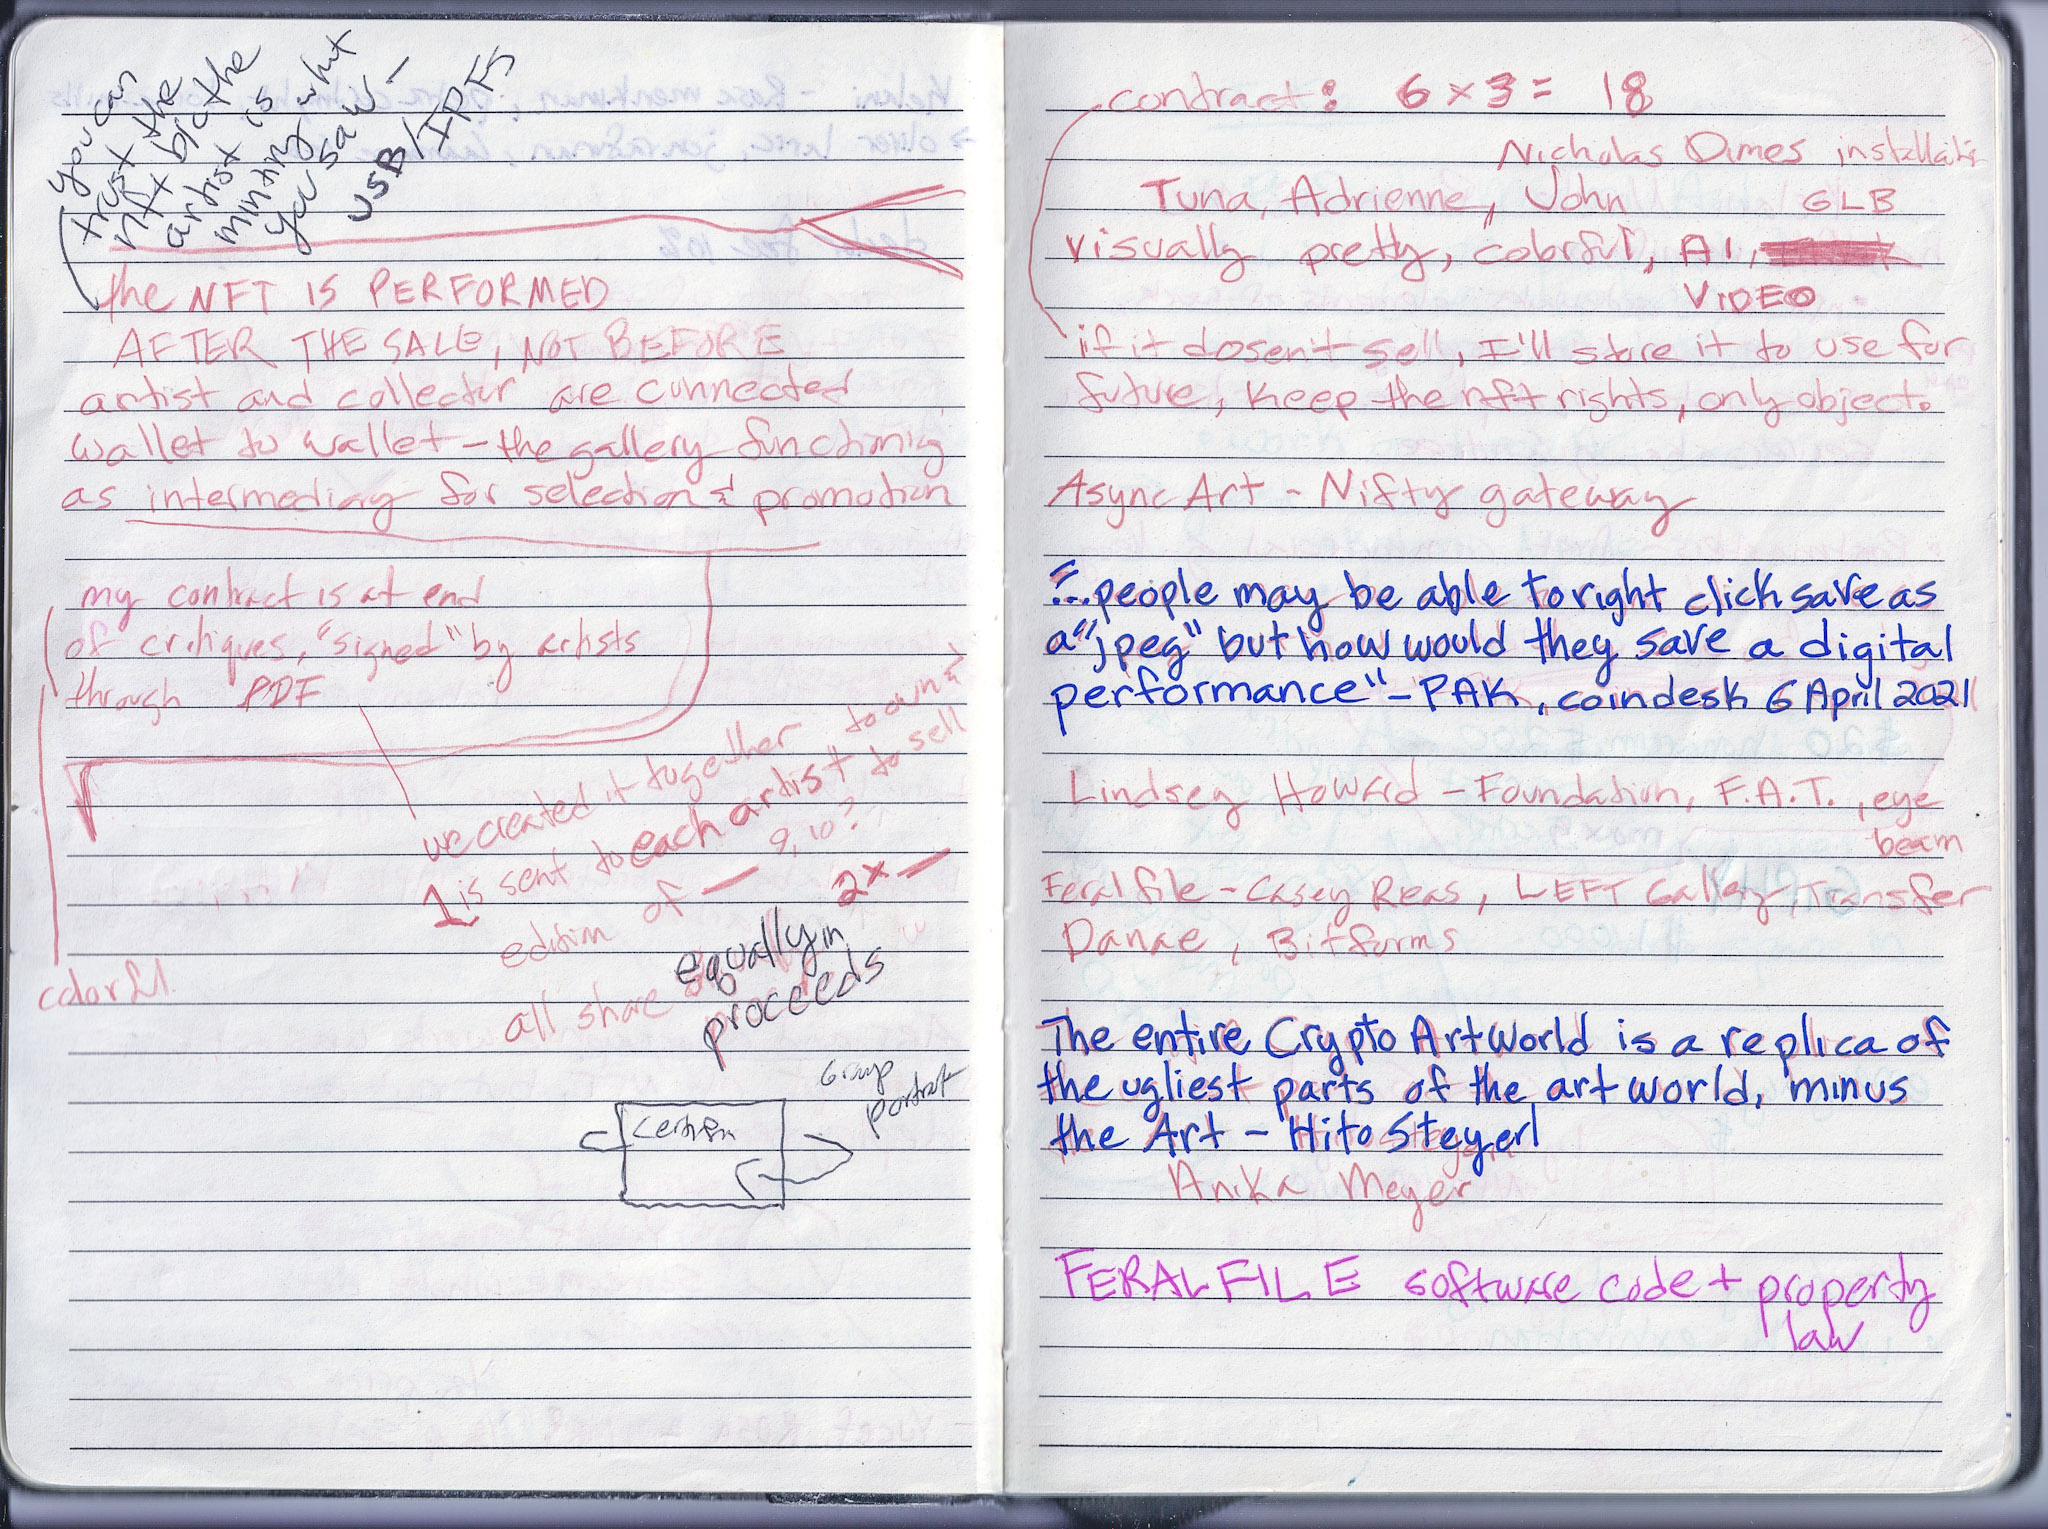 you can
trust the
nft b/c the
artist is
minting what
you saw -
USB/IPFS
the NFT IS PERFORMED
AFTER THE SALE, NOT BEFORE
artist and collector are connected
wallet to wallet - the gallery functioning
as intermediary for selection & promotion
my contract is at end
of critiques, "signed" by artists
through PDF
we created it together to own &
1 is sent to each artist to sell
edition of — 9, 10?
2x —
all share equally in
proceeds
colorful
Group
portrait
contract: 6 x 3 = 18
Nicholas installation
Tuna, Adrienne, John GLB
visually pretty, colorful, AI,
VIDEO
if it dosen't sell, I'll store it to use for
future, keep the nft rights, only object.
Async Art - Nifty gateway
"...people may be able to right click save as
a "jpeg" but how would they save a digital
performance" - PAK, coindesk 6 April 2021
Lindsey Howard - Foundation, F.A.T., eye
beam
Feral file - Casey Reas, LEFT Gallery, Transfer
Danae, Bitforms
The entire Crypto Art World is a replica of
the ugliest parts of the art world, minus
the Art - Hito Steyerl
Anika Meyer
FERAL FILE software code + property
law